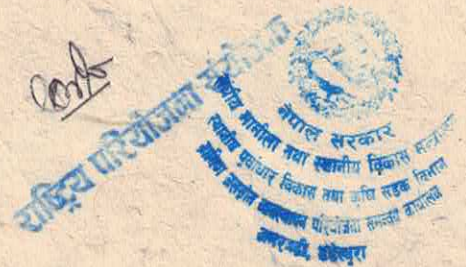 राष्ट्रिय परियोजना संयोजक
नेपाल सरकार
मामिला तथा स्थानीय विकास मन्त्रालय
स्थानीय पूर्वाधार विकास तथा कृषि सडक विभाग
परियोजना समन्वय कार्यालय